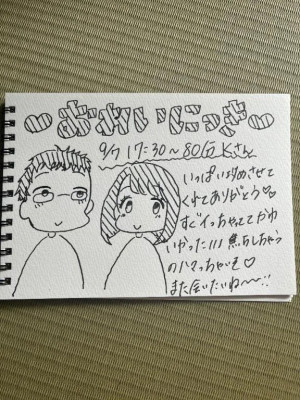 おれいにっき
9/7 17:30〜80分 Kさん
いっぱい攻めさせて
くれてありがとう♡♡
すぐイっちゃっててかわ
いかった!!! 焦らしちゃう
のハマっちゃいそ♡
また会いたいね〜〜!!